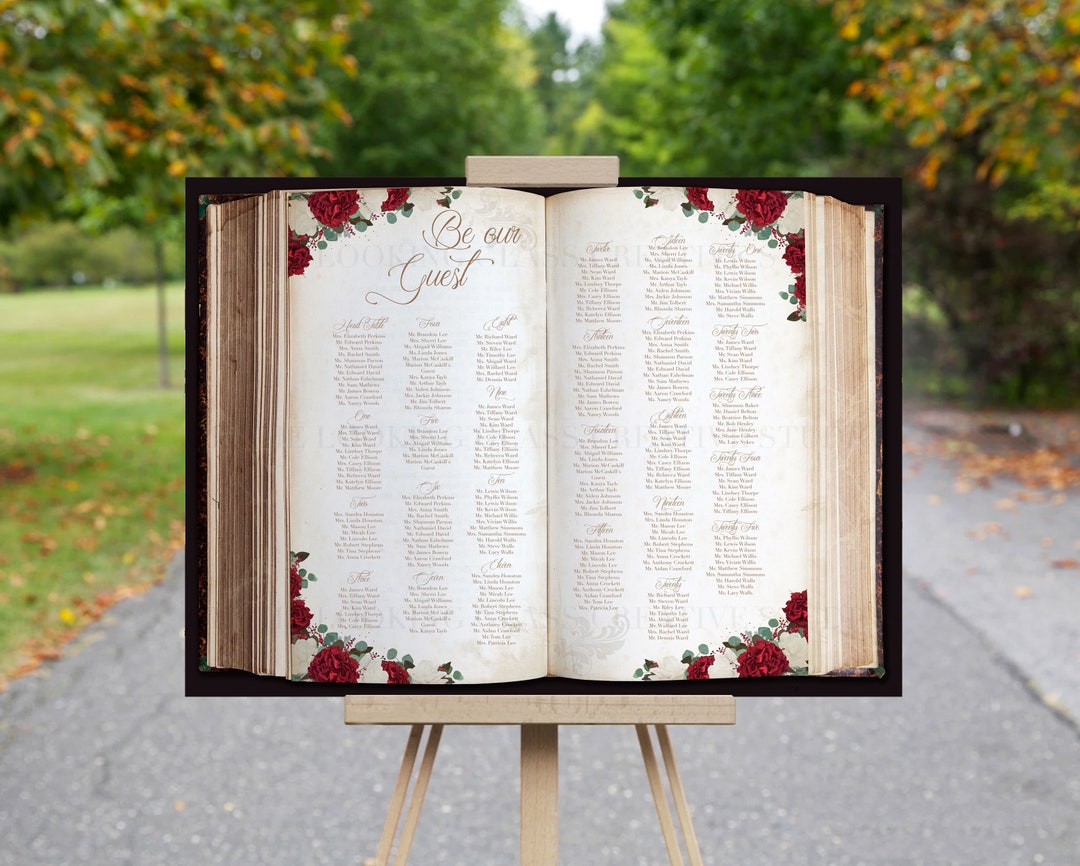 Be our
Guest
Head Table
Mrs. Elizabeth Perkins
Mr. Edward Perkins
Mrs. Anna Smith
Ms. Rachel Smith
Ms. Shannon Parson
Mr. Nathaniel David
Mr. Edward David
Mr. Nathan Eshelman
Mr. Sam Mathews
Mr. James Bowen
Mr. Aaron Crawford
Ms. Nancy Woods
One
Mr. James Ward
Mrs. Tiffany Ward
Mr. Sean Ward
Ms. Kim Ward
Ms. Lindsey Thorpe
Mr. Cole Ellison
Mrs. Casey Ellison
Ms. Tiffany Ellison
Ms. Rebecca Ward
Ms. Katelyn Ellison
Mr. Matthew Moore
Two
Ms. Sandra Houston
Ms. Linda Houston
Mr. Mason Lee
Mr. Micah Lee
Mr. Lincoln Lee
Mr. Robert Stephens
Ms. Tina Stephens
Ms. Anna Crockett
Three
Mr. James Ward
Mrs. Tiffany Ward
Mr. Sean Ward
Ms. Kim Ward
Ms. Lindsey Thorpe
Mr. Cole Ellison
Mrs. Casey Ellison
Four
Mr. Brandon Lee
Mrs. Sherri Lee
Mr. Abigail Williams
Ms. Linda Jones
Mr. Marion McCaskill
Marion McCaskill's
Guest
Mrs. Kanya Tayh
Mr. Arthur Tayh
Mr. Aiden Johnson
Mrs. Jackie Johnson
Mr. Jim Tolbert
Ms. Rhonda Sharon
Five
Mr. Brandon Lee
Mrs. Sherri Lee
Mr. Abigail Williams
Ms. Linda Jones
Mr. Marion McCaskill
Marion McCaskill's
Guest
Six
Mrs. Elizabeth Perkins
Mr. Edward Perkins
Mrs. Anna Smith
Ms. Rachel Smith
Ms. Shannon Parson
Mr. Nathaniel David
Mr. Edward David
Mr. Nathan Eshelman
Mr. Sam Mathews
Mr. James Bowen
Mr. Aaron Crawford
Ms. Nancy Woods
Seven
Mr. Brandon Lee
Mrs. Sherri Lee
Mr. Abigail Williams
Ms. Linda Jones
Mr. Marion McCaskill
Marion McCaskill's
Guest
Mrs. Kanya Tayh
Eight
Mr. Richard Ward
Mr. Steven Ward
Mr. Riley Lee
Mr. Timothy Lee
Ms. Abigail Ward
Mr. Williard Lee
Mrs. Rachel Ward
Mr. Dennis Ward
Nine
Mr. James Ward
Mrs. Tiffany Ward
Mr. Sean Ward
Ms. Kim Ward
Ms. Lindsey Thorpe
Mr. Cole Ellison
Mrs. Casey Ellison
Ms. Tiffany Ellison
Ms. Rebecca Ward
Ms. Katelyn Ellison
Mr. Matthew Moore
Ten
Mr. Lewis Wilson
Ms. Phyllis Wilson
Mr. Lewis Wilson
Mr. Kevin Wilson
Mr. Michael Willis
Mrs. Vivian Willis
Mr. Matthew Simmons
Mrs. Samantha Simmons
Mr. Harold Walls
Mr. Steve Walls
Ms. Lacy Walls
Eleven
Ms. Sandra Houston
Ms. Linda Houston
Mr. Mason Lee
Mr. Micah Lee
Mr. Lincoln Lee
Mr. Robert Stephens
Ms. Tina Stephens
Ms. Anna Crockett
Mr. Anthony Crockett
Mr. Aidan Crawford
Mr. Tom Lee
Mrs. Patricia Lee
Twelve
Mr. James Ward
Mrs. Tiffany Ward
Mr. Sean Ward
Ms. Kim Ward
Ms. Lindsey Thorpe
Mr. Cole Ellison
Mrs. Casey Ellison
Ms. Tiffany Ellison
Ms. Rebecca Ward
Ms. Katelyn Ellison
Mr. Matthew Moore
Thirteen
Mrs. Elizabeth Perkins
Mr. Edward Perkins
Mrs. Anna Smith
Ms. Rachel Smith
Ms. Shannon Parson
Mr. Nathaniel David
Mr. Edward David
Mr. Nathan Eshelman
Mr. Sam Mathews
Mr. James Bowen
Mr. Aaron Crawford
Ms. Nancy Woods
Fourteen
Mr. Brandon Lee
Mrs. Sherri Lee
Mr. Abigail Williams
Ms. Linda Jones
Mr. Marion McCaskill
Marion McCaskill's
Guest
Mrs. Kanya Tayh
Mr. Arthur Tayh
Mr. Aiden Johnson
Mrs. Jackie Johnson
Mr. Jim Tolbert
Ms. Rhonda Sharon
Fifteen
Ms. Sandra Houston
Ms. Linda Houston
Mr. Mason Lee
Mr. Micah Lee
Mr. Lincoln Lee
Mr. Robert Stephens
Ms. Tina Stephens
Ms. Anna Crockett
Mr. Anthony Crockett
Mr. Aidan Crawford
Mr. Tom Lee
Mrs. Patricia Lee
Sixteen
Mr. Brandon Lee
Mrs. Sherri Lee
Mr. Abigail Williams
Ms. Linda Jones
Mr. Marion McCaskill
Mrs. Kanya Tayh
Mr. Arthur Tayh
Mr. Aiden Johnson
Mrs. Jackie Johnson
Mr. Jim Tolbert
Ms. Rhonda Sharon
Seventeen
Mrs. Elizabeth Perkins
Mr. Edward Perkins
Mrs. Anna Smith
Ms. Rachel Smith
Ms. Shannon Parson
Mr. Nathaniel David
Mr. Edward David
Mr. Nathan Eshelman
Mr. Sam Mathews
Mr. James Bowen
Mr. Aaron Crawford
Ms. Nancy Woods
Eighteen
Mr. James Ward
Mrs. Tiffany Ward
Mr. Sean Ward
Ms. Kim Ward
Ms. Lindsey Thorpe
Mr. Cole Ellison
Mrs. Casey Ellison
Ms. Tiffany Ellison
Ms. Rebecca Ward
Ms. Katelyn Ellison
Mr. Matthew Moore
Nineteen
Ms. Sandra Houston
Ms. Linda Houston
Mr. Mason Lee
Mr. Micah Lee
Mr. Lincoln Lee
Mr. Robert Stephens
Ms. Tina Stephens
Ms. Anna Crockett
Mr. Anthony Crockett
Mr. Aidan Crawford
Twenty
Mr. Richard Ward
Mr. Steven Ward
Mr. Riley Lee
Mr. Timothy Lee
Ms. Abigail Ward
Mr. Williard Lee
Mrs. Rachel Ward
Mr. Dennis Ward
Twenty One
Mr. Lewis Wilson
Ms. Phyllis Wilson
Mr. Lewis Wilson
Mr. Kevin Wilson
Mr. Michael Willis
Mrs. Vivian Willis
Mr. Matthew Simmons
Mrs. Samantha Simmons
Mr. Harold Walls
Mr. Steve Walls
Twenty Two
Mr. James Ward
Mrs. Tiffany Ward
Mr. Sean Ward
Ms. Kim Ward
Ms. Lindsey Thorpe
Mr. Cole Ellison
Mrs. Casey Ellison
Twenty Three
Ms. Shannon Baker
Mr. Daniel Belton
Ms. Beatrice Belton
Mr. Bob Henley
Mrs. Jane Henley
Ms. Sharon Gilbert
Ms. Lacy Sykes
Twenty Four
Mr. James Ward
Mrs. Tiffany Ward
Mr. Sean Ward
Ms. Kim Ward
Ms. Lindsey Thorpe
Mr. Cole Ellison
Mrs. Casey Ellison
Ms. Tiffany Ellison
Twenty Five
Ms. Phyllis Wilson
Mr. Lewis Wilson
Mr. Kevin Wilson
Mr. Michael Willis
Mrs. Vivian Willis
Mr. Matthew Simmons
Mrs. Samantha Simmons
Mr. Harold Walls
Mr. Steve Walls
Ms. Lacy Walls